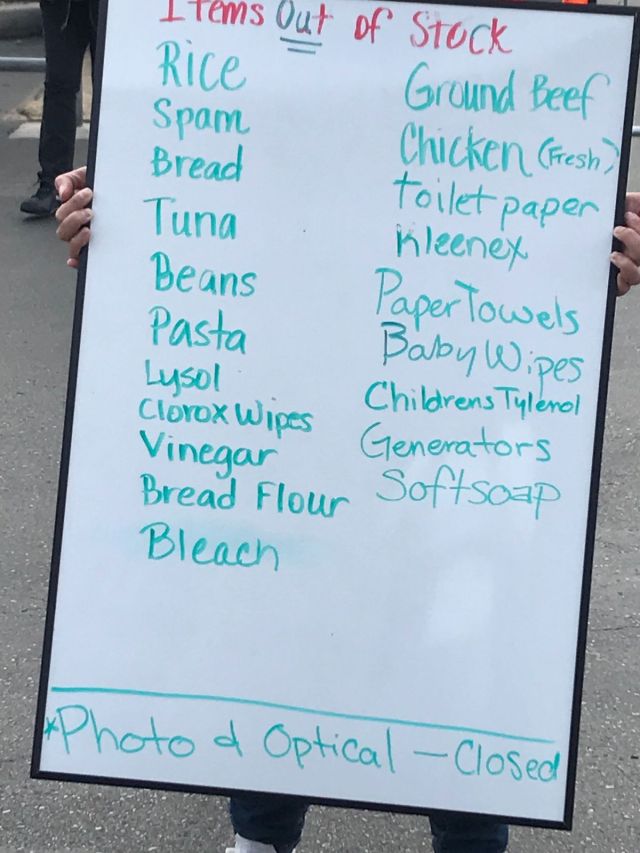 Items Out of Stock
Rice
Spam
Bread
Tuna
Beans
Pasta
Lysol
Clorox Wipes
Vinegar
Bread Flour
Bleach
Ground Beef
Chicken (Fresh)
toilet paper
Kleenex
Paper Towels
Baby Wipes
Childrens Tylenol
Generators
Softsoap
*Photo & Optical - Closed